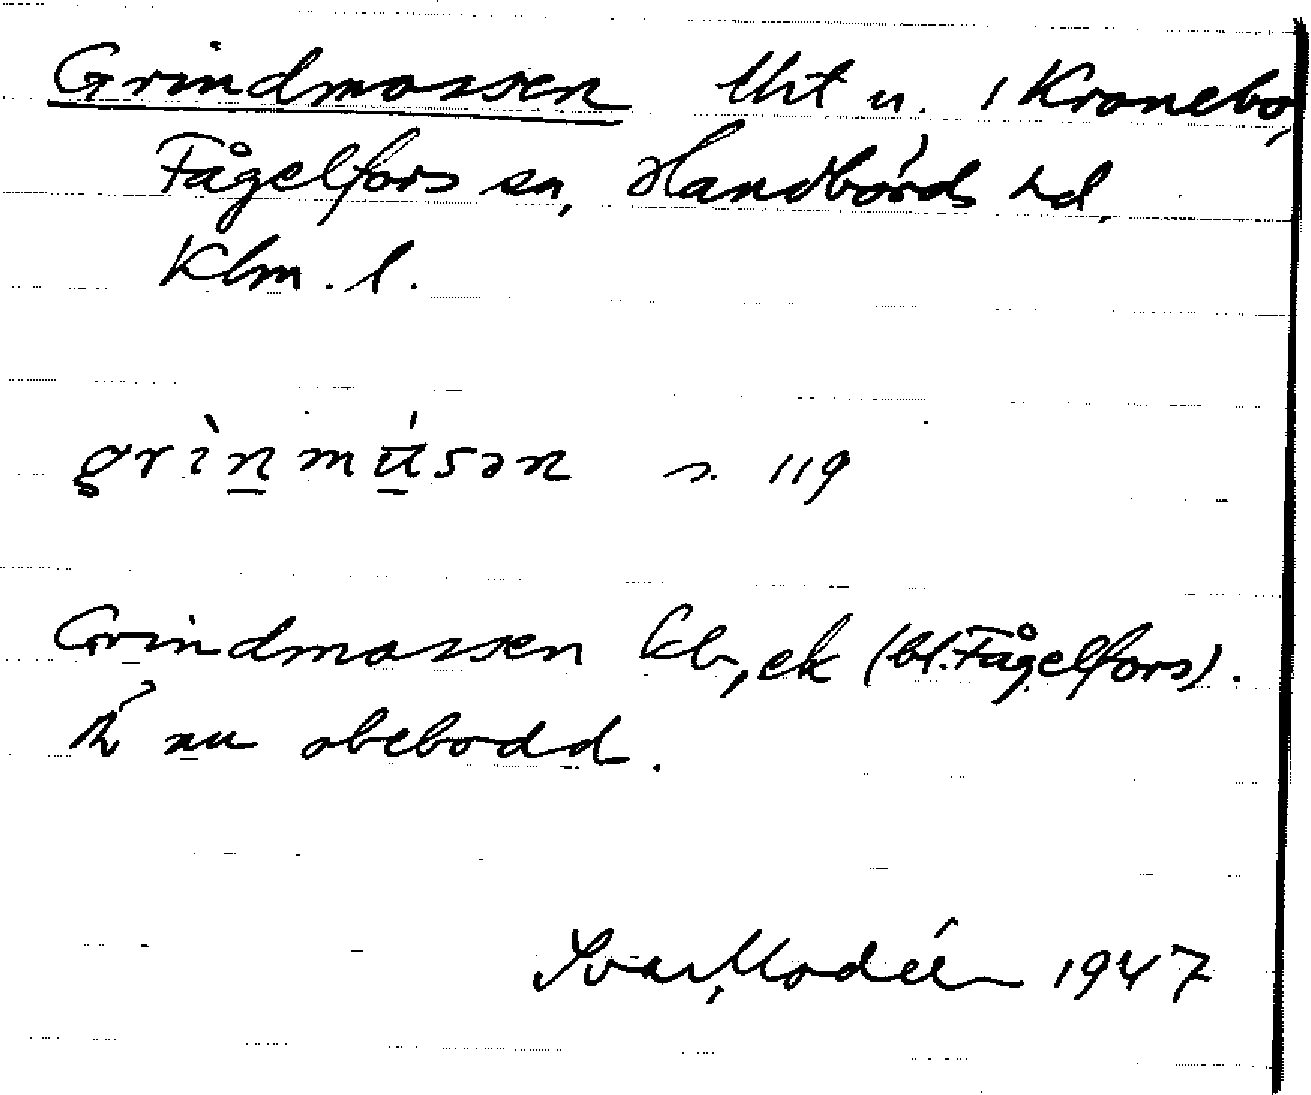 Grindmossen tht u. i Kronebo,
Fågelfors sn, Handbörds hd,
Klm. l.
grìnmúsən s. 119
Grindmossen kb, ek (bl. Fågelfors).
Är nu obebodd.
Ivar Modéer 1947